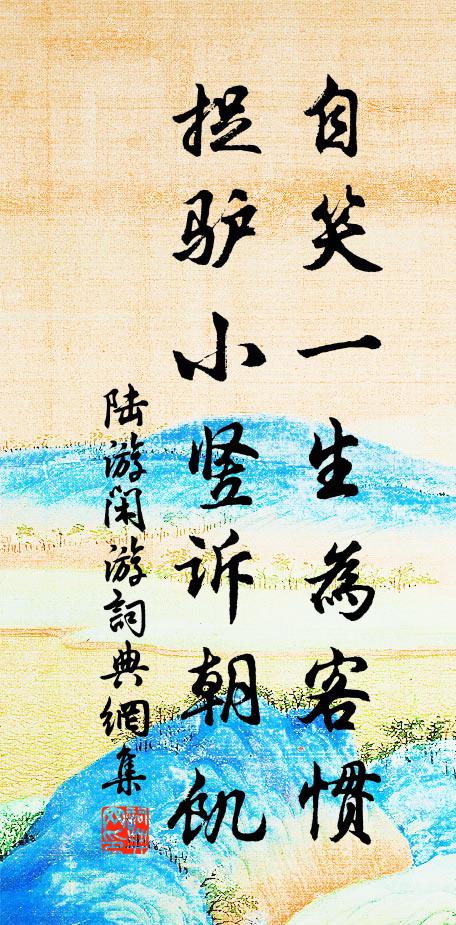 自笑一生為客慣
捉驴小竖诉朝飢
陆游闲游詞典網集